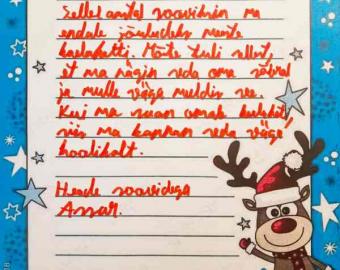 Sellel aastal sooviksin ma
endale jõuludeks meeste
kaelaketti. Mõte tuli sellest,
et ma nägin seda oma sõbral
ja mulle väga meeldis see.
Kui ma saan omale keti,
siis ma kannan seda väga
hoolikalt.
Heade soovidega
Assar.